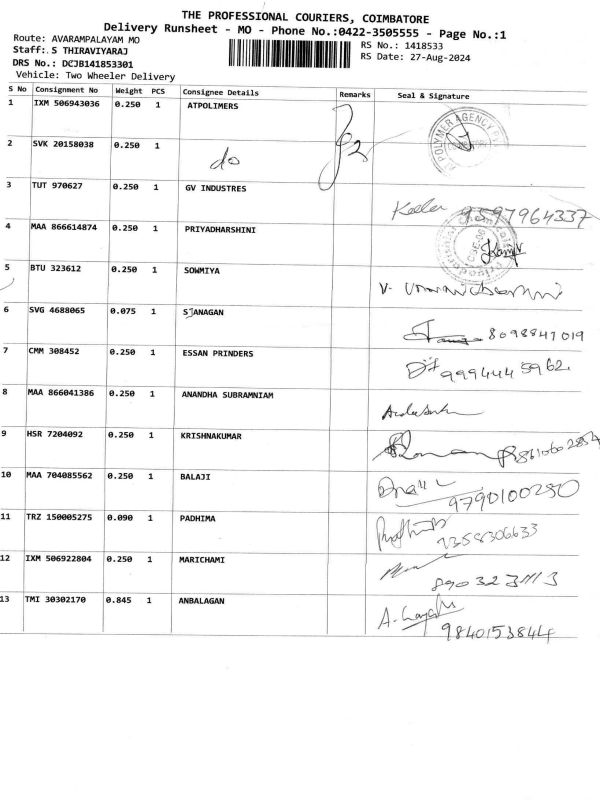 THE PROFESSIONAL COURIERS, COIMBATORE
Delivery Runsheet - MO - Phone No.:0422-3505555 - Page No.:1
Route: AVARAMPALAYAM MO RS No.: 1418533
Staff: S THIRAVIYARAJ RS Date: 27-Aug-2024
DRS No.: DCJB141853301
Vehicle: Two Wheeler Delivery
S No Consignment No Weight PCS Consignee Details Remarks Seal & Signature
1 IXM 506943036 0.250 1 ATPOLIMERS
2 SVK 20158038 0.250 1
do
3 TUT 970627 0.250 1 GV INDUSTRES
9597964337
4 MAA 866614874 0.250 1 PRIYADHARSHINI
5 BTU 323612 0.250 1 SOWMIYA
6 SVG 4688065 0.075 1 SJANAGAN
8098847019
7 CMM 308452 0.250 1 ESSAN PRINDERS
9994445962
8 MAA 866041386 0.250 1 ANANDHA SUBRAMNIAM
9 HSR 7204092 0.250 1 KRISHNAKUMAR
10 MAA 704085562 0.250 1 BALAJI
11 TRZ 150005275 0.090 1 PADHIMA
12 IXM 506922804 0.250 1 MARICHAMI
13 TMI 30302170 0.845 1 ANBALAGAN
9840153844